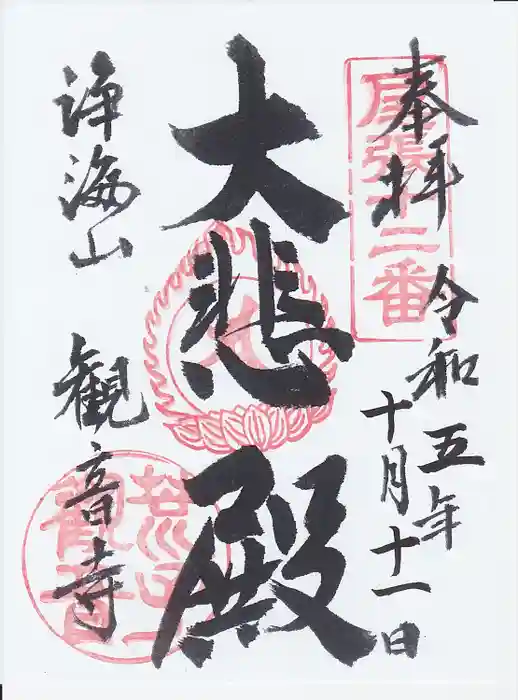 奉拝
令和五年
十月十一日
尾張十二番
大悲殿
浄海山
観音寺
荒子
観音